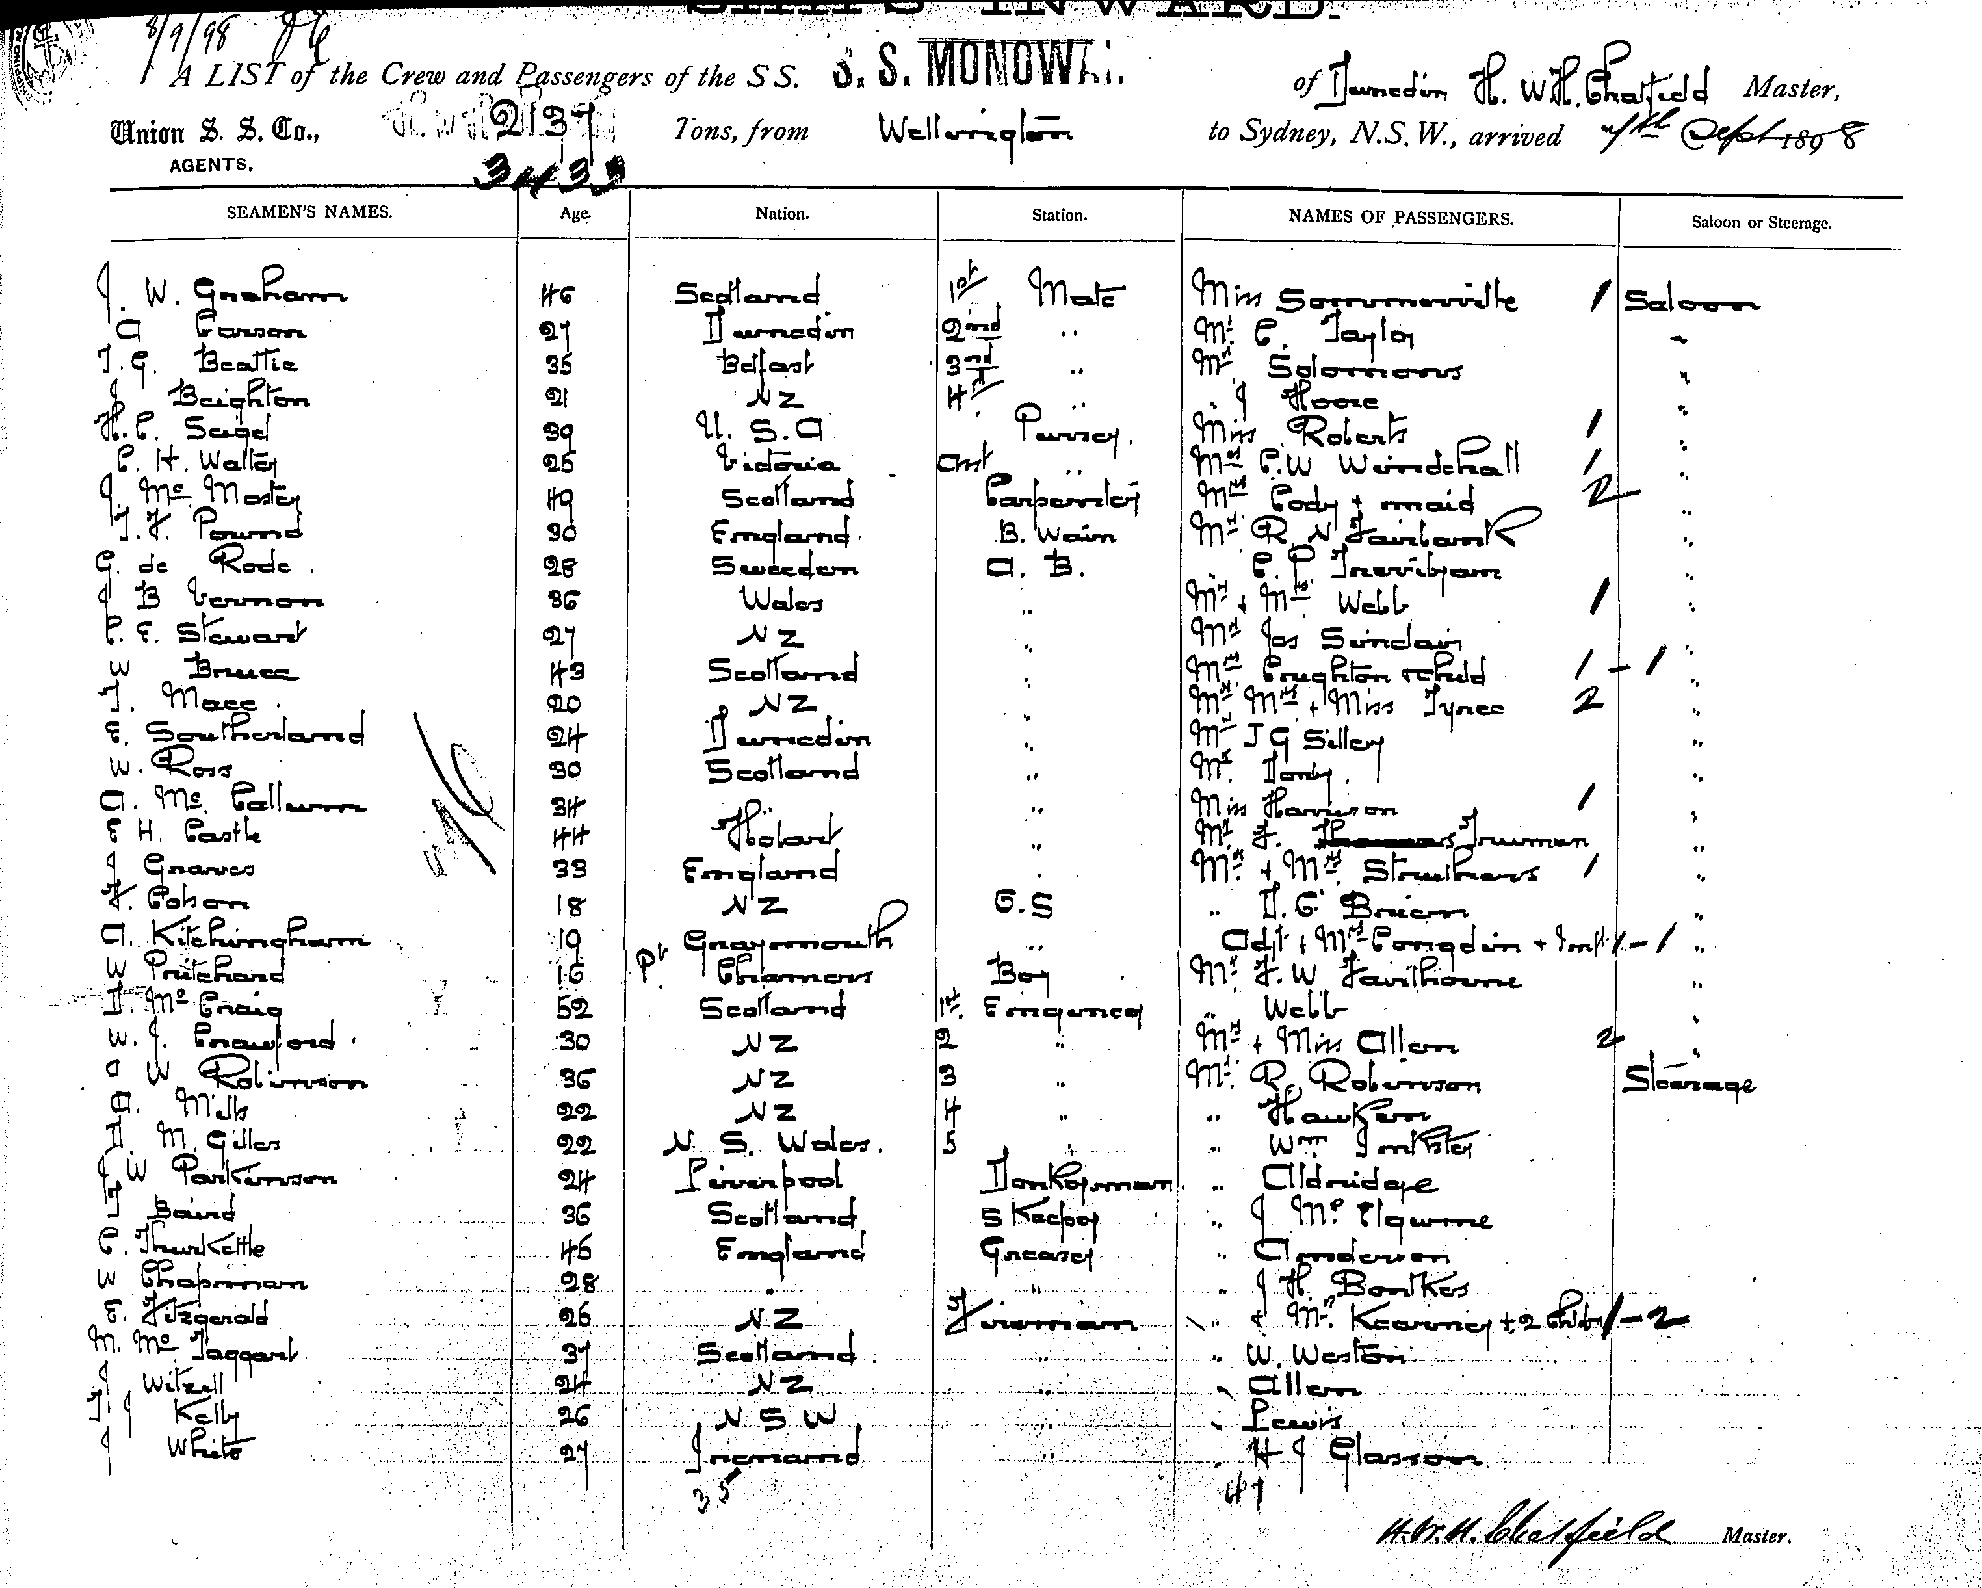 SHIPS INWARD.
8/9/98
A LIST of the Crew and Passengers of the SS. S. S. MONOWAI. of Dunedin H. W. H. Chatfield Master,
Union S. S. Co., 2137 Tons, from Wellington to Sydney, N.S.W., arrived 7th Sept 1898
AGENTS. 3433
SEAMEN'S NAMES. Age. Nation. Station. NAMES OF PASSENGERS. Saloon or Steerage.
J. W. Graham 46 Scotland 1st Mate Miss Sommerville 1 Saloon
A Carson 27 Dunedin 2nd " Mr C. Taylor "
T. G. Beattie 35 Belfast 3rd " Mr Solomons "
J Beighton 21 NZ 4th " " J Hoore "
H. C. Seigel 39 U. S. A Purser. Miss Roberts 1 "
C. H. Walter 25 Victoria Asst " Mrs C. W Windchall 1 "
J. Mc Master 49 Scotland Carpenter Mrs Cody + maid 2 "
T. F. Pound 30 England. B. Wain Mr R. N Fairbank "
G. de Rode. 28 Sweden A. B. " C. P Trevilyan "
J B Vernon 36 Wales " Mr + Mrs Webb 1 "
C. E. Stewart 27 NZ " Mr Jas Sinclair "
W Bruce 43 Scotland " Mrs Crughton + Child 1 - 1 "
T. Mace. 20 NZ " Mr Mrs + Miss Tyree 2 "
E. Southerland 24 Dunedin " Mr J G Silley "
W. Ross 30 Scotland " Mr "
A. Mc Callum 34 " Miss Harrison 1 "
E H. Castle 44 Hobart " Mr F. Truman "
J Graves 33 England " Mr + Mrs Struthers 1 "
F. Cohon 18 NZ O. S " D. C Brien "
A. Kitchingham 19 Graymouth " Adjt + Mrs Congdin + Inft 1 - 1 "
W Pritchard 16 Pt Chamers Boy Mr F. W Fawthorne "
D. Mc Craig 52 Scotland 1st Enginner " Webb "
W. J. Crawford. 30 NZ 2 " Mr + Miss Allen 2 "
A W Robinson 36 NZ 3 " Mr. R. Robinson Steerage
A. Mills 22 NZ 4 " " Hawken
D. M. Gilles 22 N. S. Wales. 5 " " Wm Inkster
J W Parkinson 24 Liverpool Donkeyman " Aldridge
T Baird 36 Scotland S Keeper " J Mc Elgunne
C. Thurkettle 46 England Greaser " Anderson
W Chapman 28 " " " J H. Bontkes
E. Fitzgerald 26 NZ Fireman " + Mrs Kearney + 2 Child 1 - 2
M. Mc Taggart 37 Scotland. " " W. Weston
J Witzell 24 NZ " " Allen
T. J Kelly 26 N S W " " Lewis
J White 27 Irenand " " H J Glasson
35 47
H. W. H. Chatfield Master.